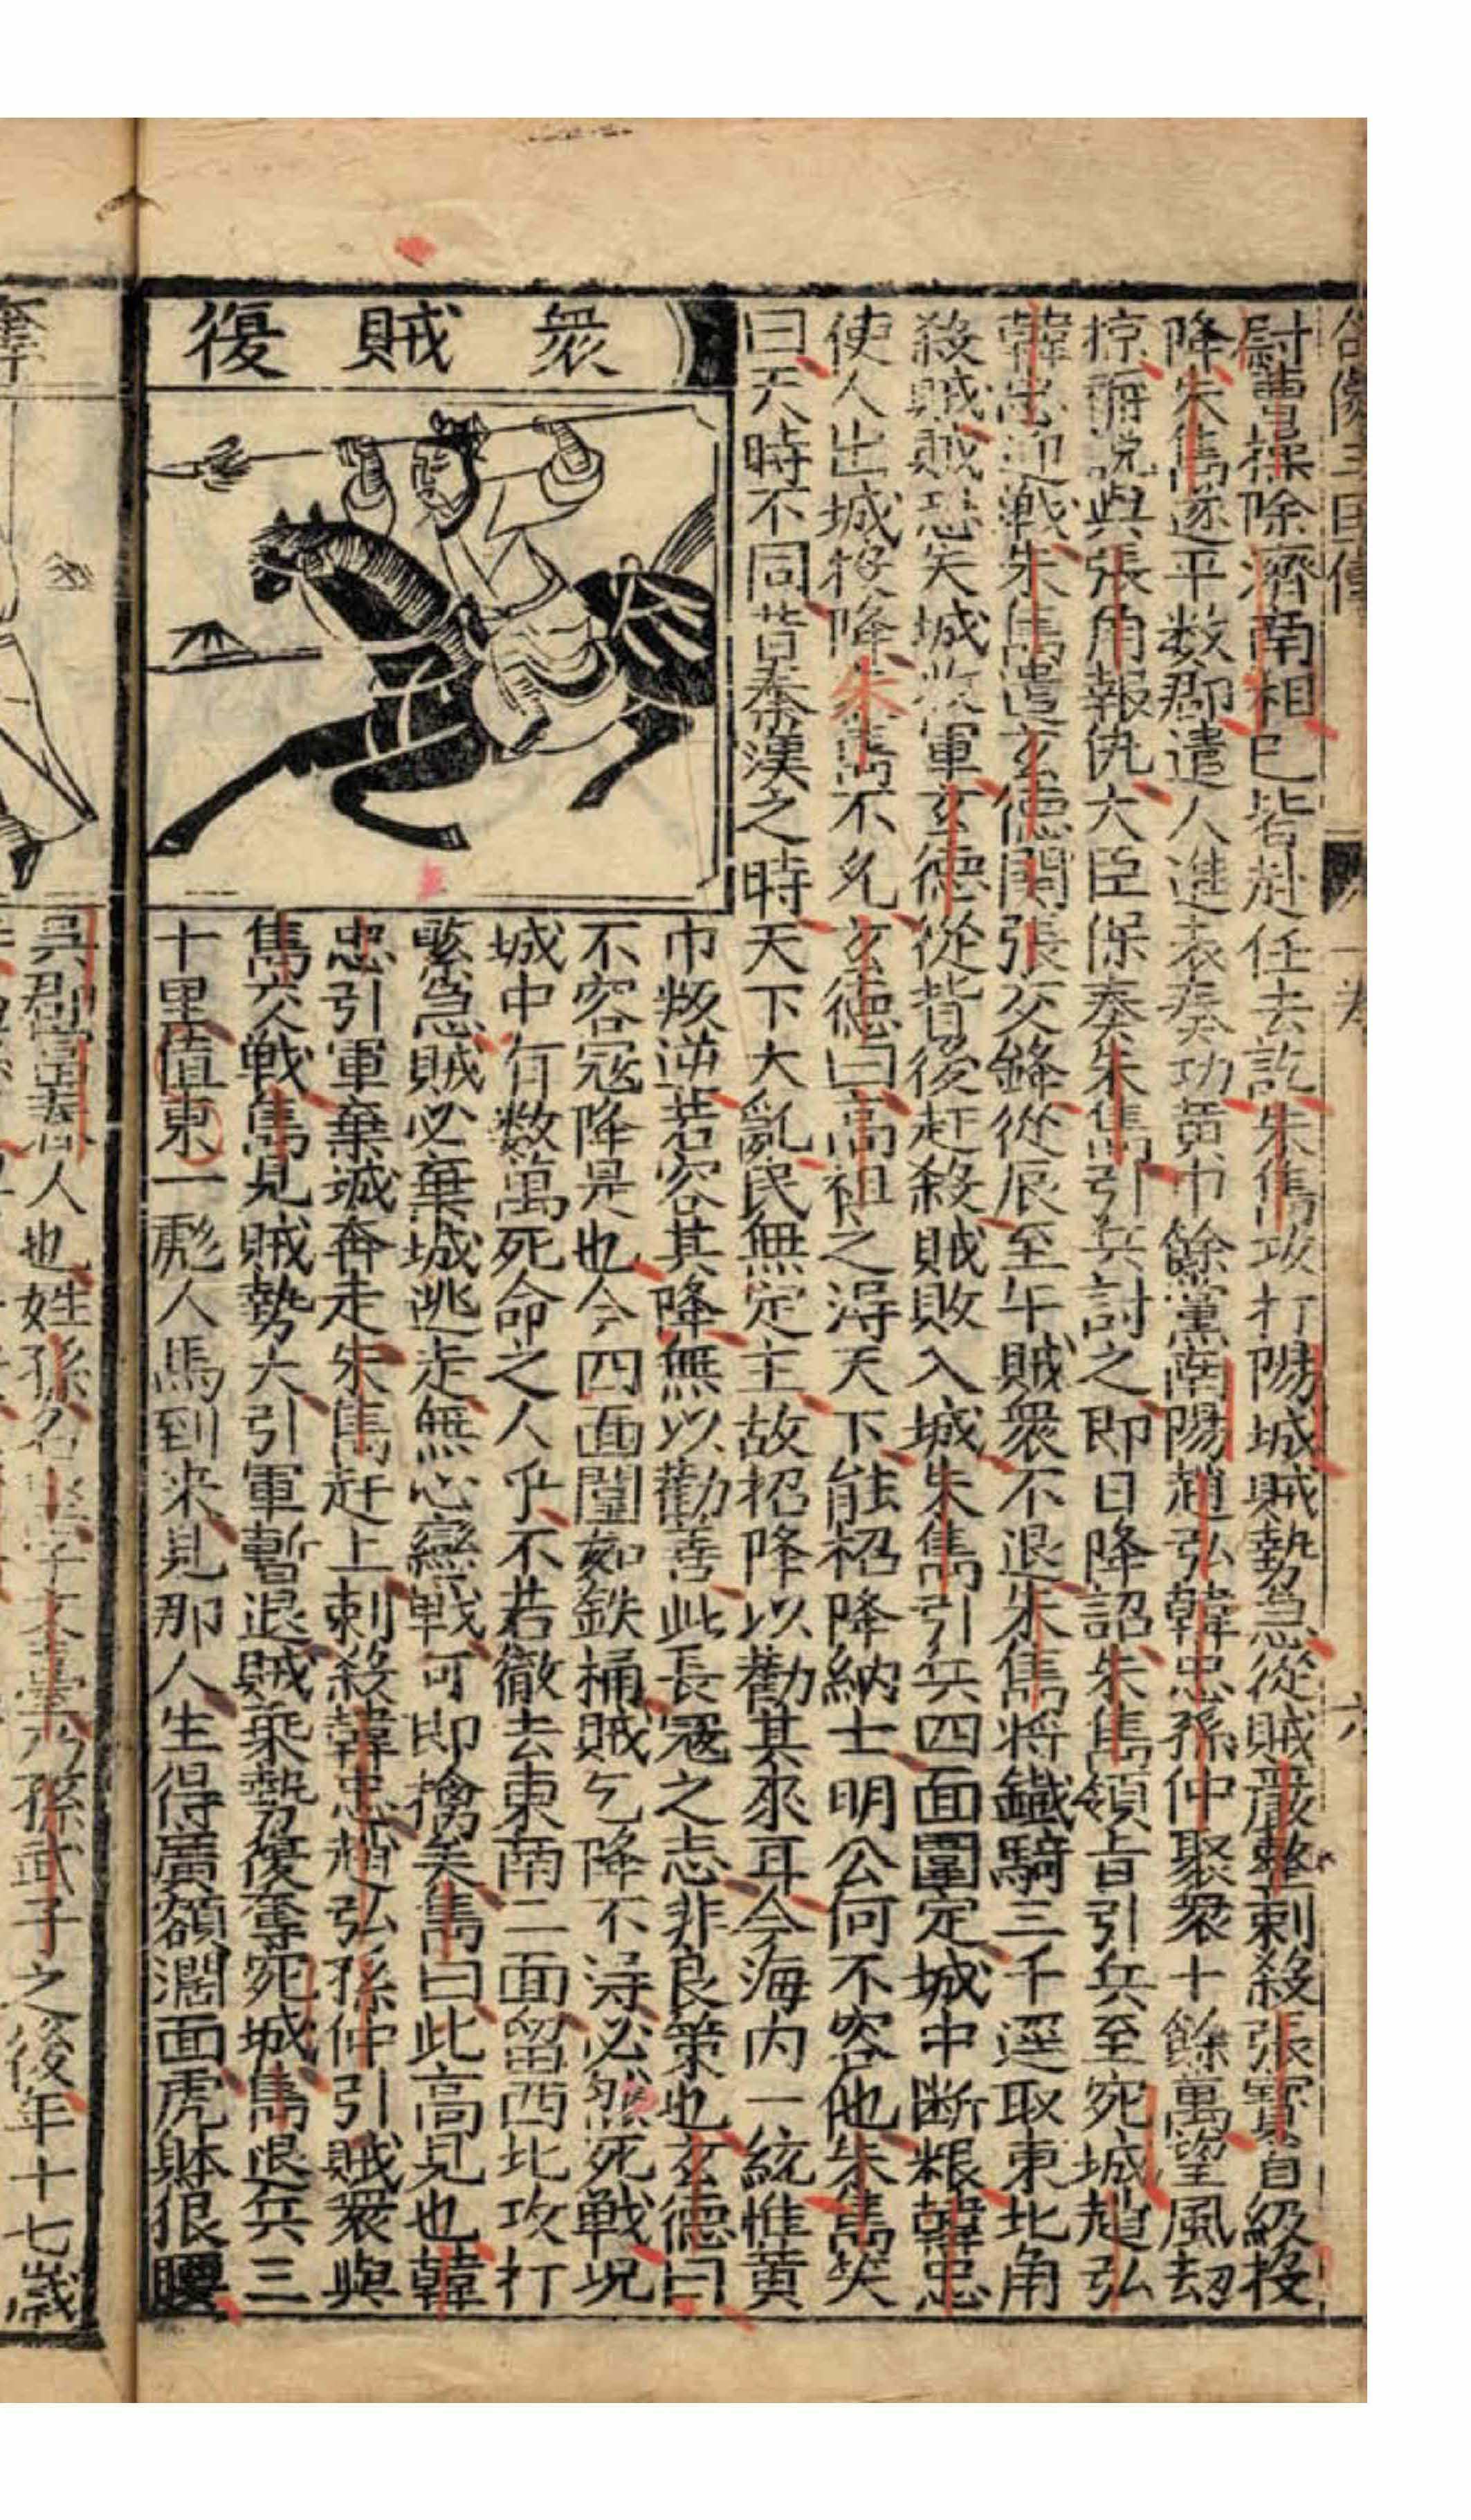 全像三国傳 一卷 六
尉曹操除濟南相已皆赴任去訖朱雋攻打陽城賊勢急從賊嚴整刺殺張寳首級投
降朱雋遂平数郡遣人進表奏功黄巾餘黨南陽趙弘韓忠孫仲聚衆十餘萬望風劫
掠說與張角報仇大臣保奏朱雋引兵討之即日降詔朱雋領旨引兵至宛城趙弘
韓忠迎戰朱雋遣玄德関張交鋒從辰至午賊衆不退朱雋将鐵騎三千逕取東北角
殺賊賊恐失城收軍玄德從背後赶殺賊敗入城朱雋引兵四面圍定城中断粮韓忠
使人出城投降朱雋不允玄德曰高祖之淂天下能招降納士明公何不容他朱雋笑
曰天時不同昔秦漢之時天下大亂民無定主故招降以勸其來耳今海内一統惟黄
衆賊復
巾叛逆若容其降無以勸善此長冦之志非良策也玄德曰
不容冦降是也今四面圍如鉄桶賊乞降不淂必然死戰况
城中有数萬死命之人乎不若徹去東南二面留西北攻打
緊急賊必棄城逃走無心戀戰可即擒矣雋曰此高見也韓
忠引軍棄城奔走朱雋赶上刺殺韓忠趙弘孫仲引賊衆與
雋交戰雋見賊勢大引軍暫退賊乘勢復奪宛城雋退兵三
十里值東一彪人馬到来見那人生得廣額濶面虎躰狠腰
奪
吳郡富春人也姓孫名堅字文臺乃孫武子之後年十七歲